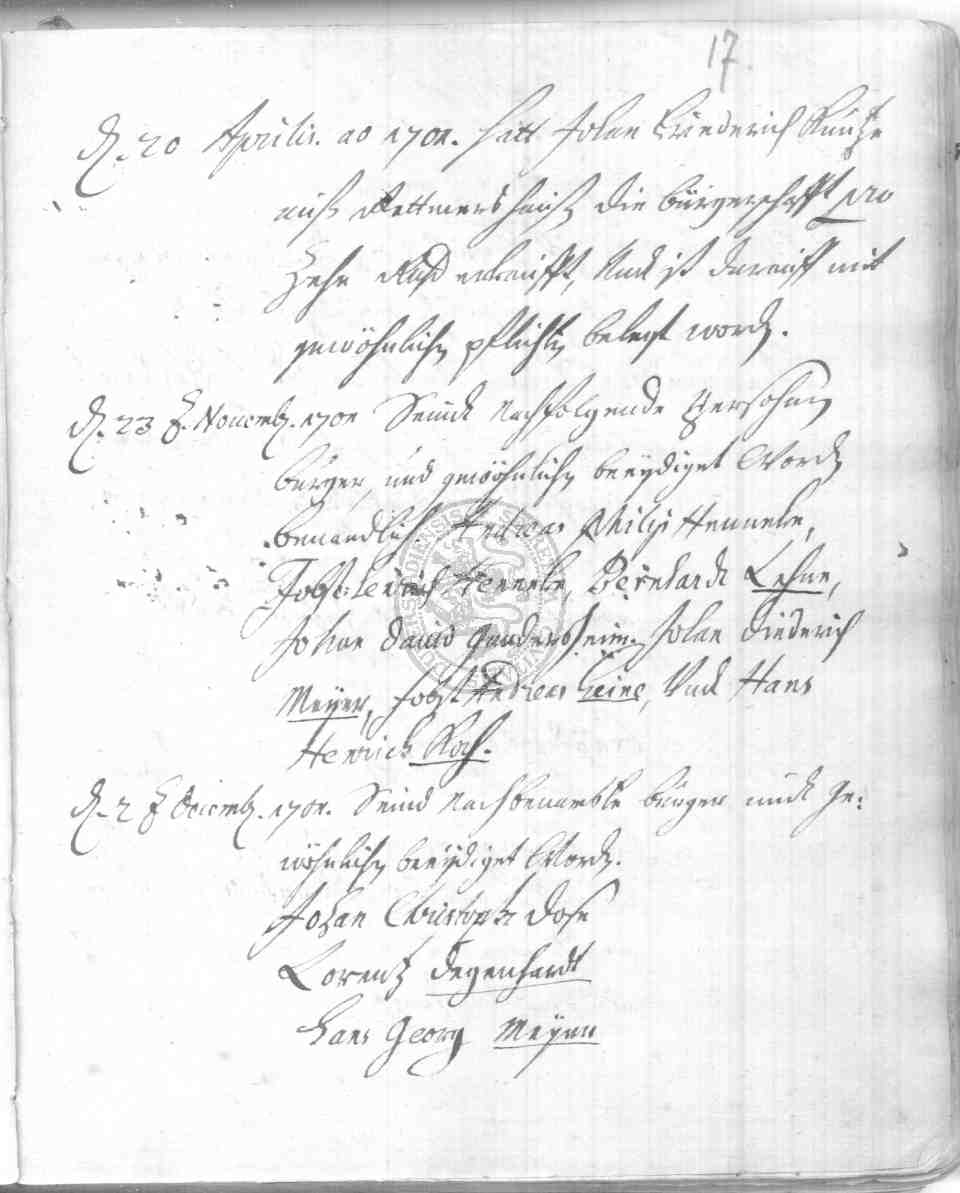 17.
d. 20 Aprilis. ao 1701. hatt Johan Friederich Kuntze
auß Rettmershauß die bürgerschafft pro
Zehn erkaufft, Undt ist darauff mit
gewöhnlichen pflichten belegt worden.
d. 23 Novemb. 1701 Seindt Nachfolgende Persohnen
bürger, und gewöhnlichen beeydiget Worden
benandtlich. Andreas Philip Henneke,
Jobst Henneke, Bernhardt Lehne,
Johan David Gandersheim, Johan Diederich
Meyer, Jobst Andreas Heine, Undt Hans
Henrich Koch.
d. 2 Decemb. 1701. Seind Nachbenambte bürger undt ge:
wöhnlichen beeydiget Worden.
Johan Christoph Dose
Lorentz Degenhardt
Hans Georg Meyer